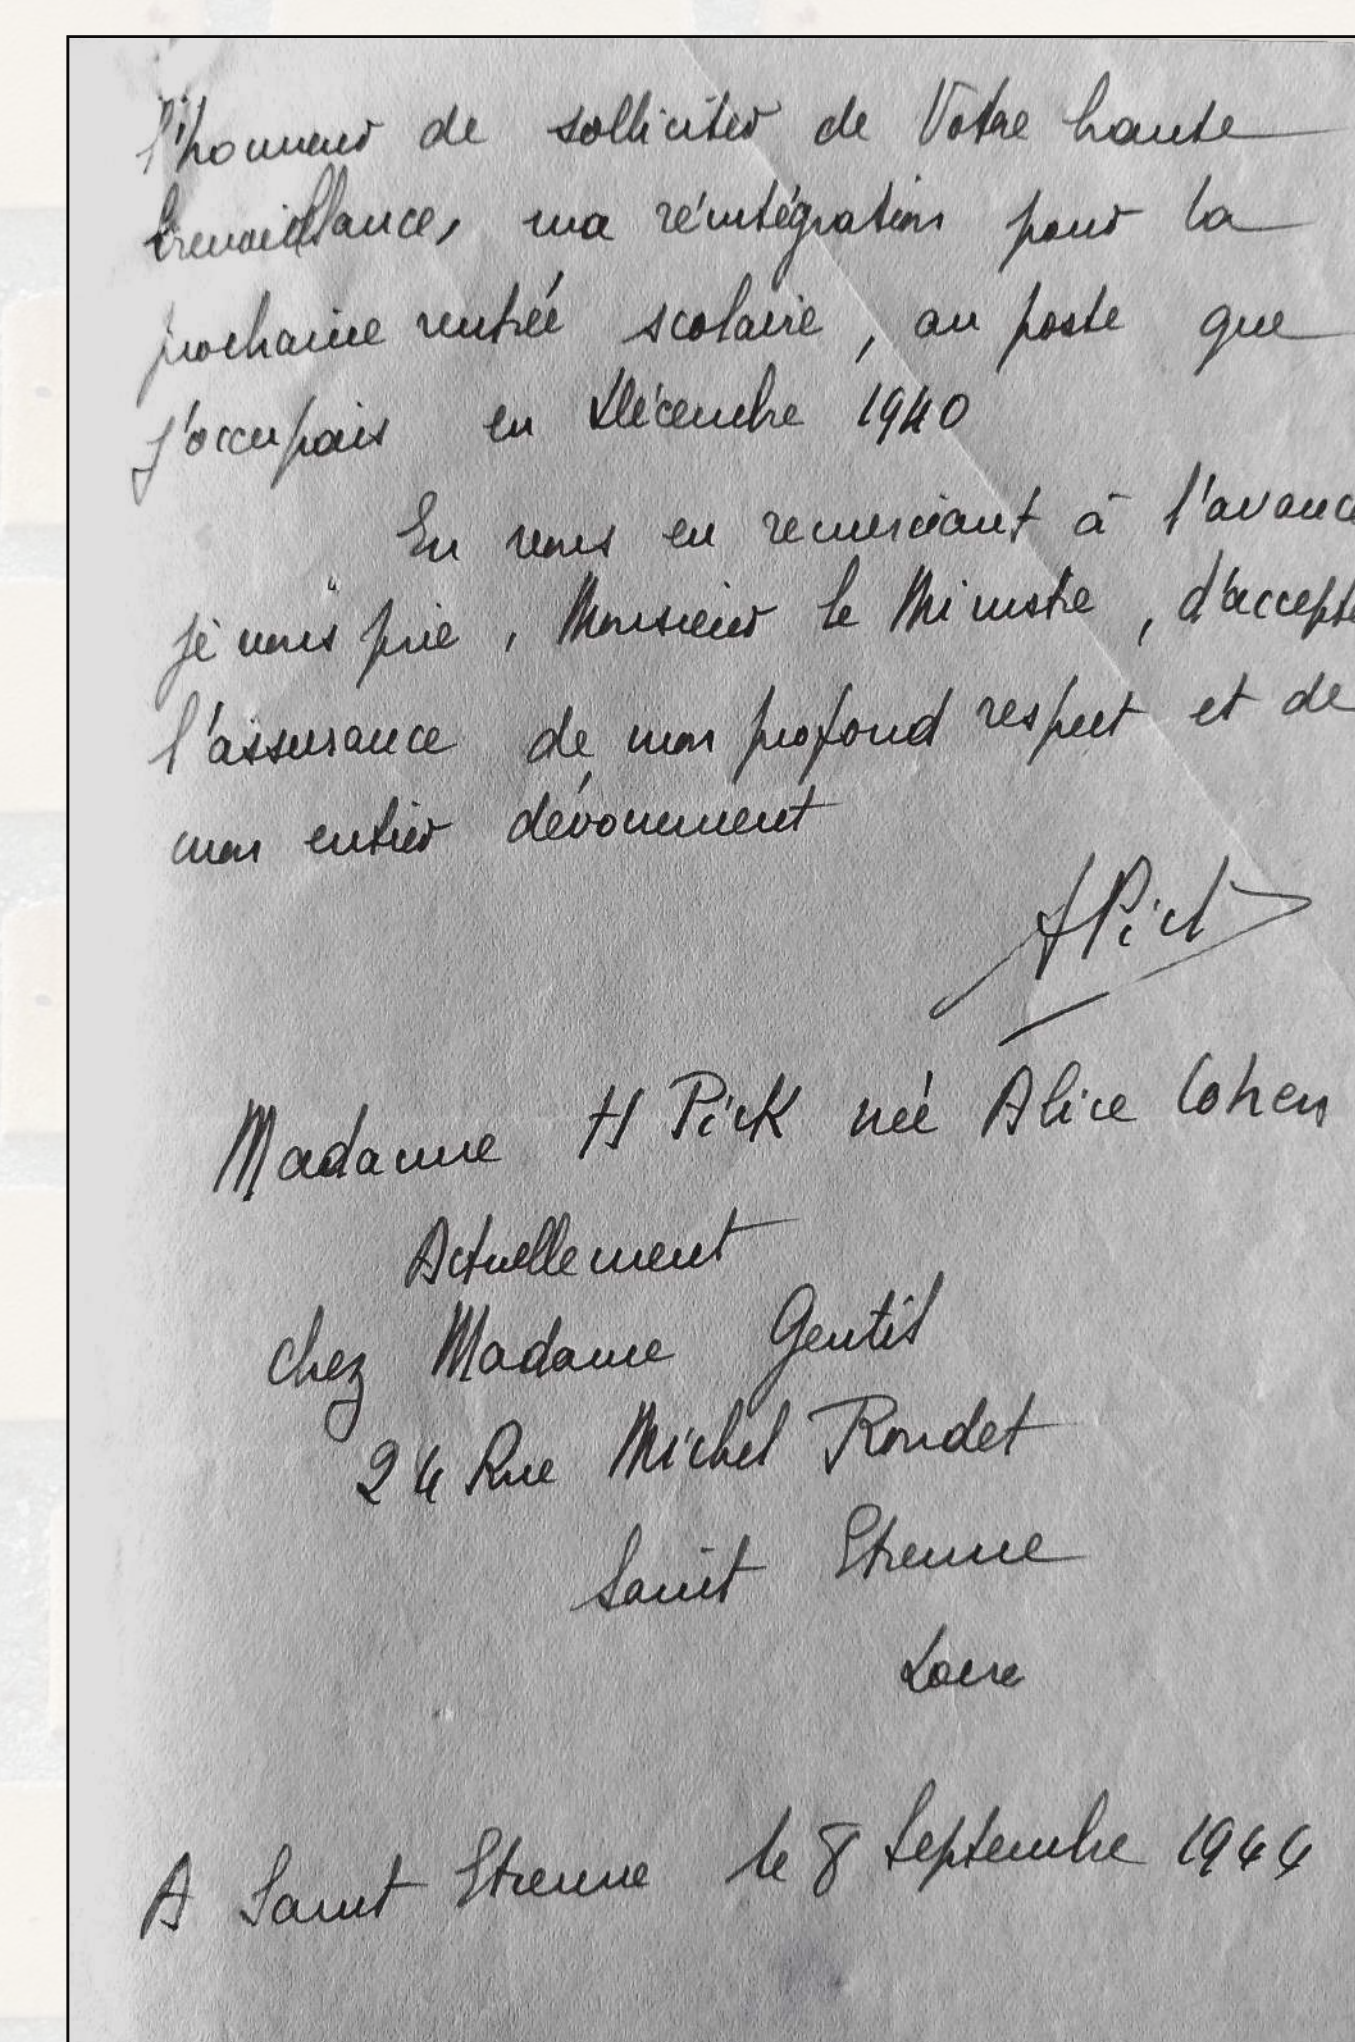 l'honneur de solliciter de Votre haute
bienveillance, ma réintégration pour la
prochaine rentrée scolaire, au poste que
j'occupais en Décembre 1940
En vous en remerciant à l'avance
je vous prie, Monsieur le Ministre, d'accepte
l'assurance de mon profond respect et de
mon entier dévouement
APick
Madame H Pick née Alice Cohen
Actuellement
chez Madame Gentil
24 Rue Michel Rondet
Saint Etienne
Loire
A Saint Etienne le 8 Septembre 1944